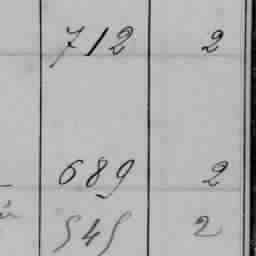 712 2
689 2
545 2